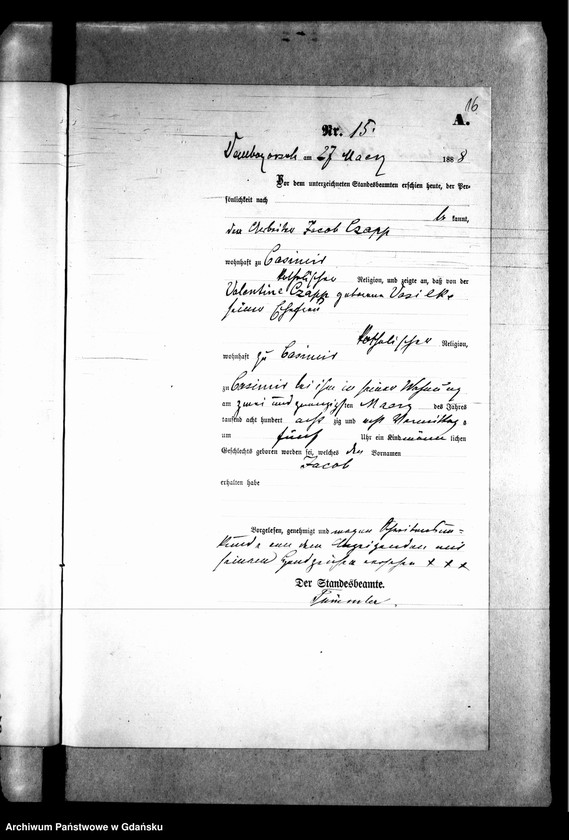 16
A.
Nr. 15.
am 27 März 1888
Vor dem unterzeichneten Standesbeamten erschien heute, der Per-
sönlichkeit nach
be kannt,
den Arbeiter Jacob Czapp
wohnhaft zu Casimir
katholischer Religion, und zeigte an, daß von der
Valentine Czapp geborene
seiner Ehefrau
katholischer Religion,
wohnhaft zu Casimir
zu Casimir bei ihm in seiner Wohnung
am zwei und zwanzigsten März des Jahres
tausend acht hundert acht zig und acht Vormittags
um fünf Uhr ein Kind männ lichen
Geschlechts geboren worden sei, welches den Vornamen
Jacob
erhalten habe
Vorgelesen, genehmigt und wegen Schreibensun-
kunde von dem Anzeigenden mit
seinem Handzeichen versehen + + +
Der Standesbeamte.
Tümmler.
Archiwum Państwowe w Gdańsku